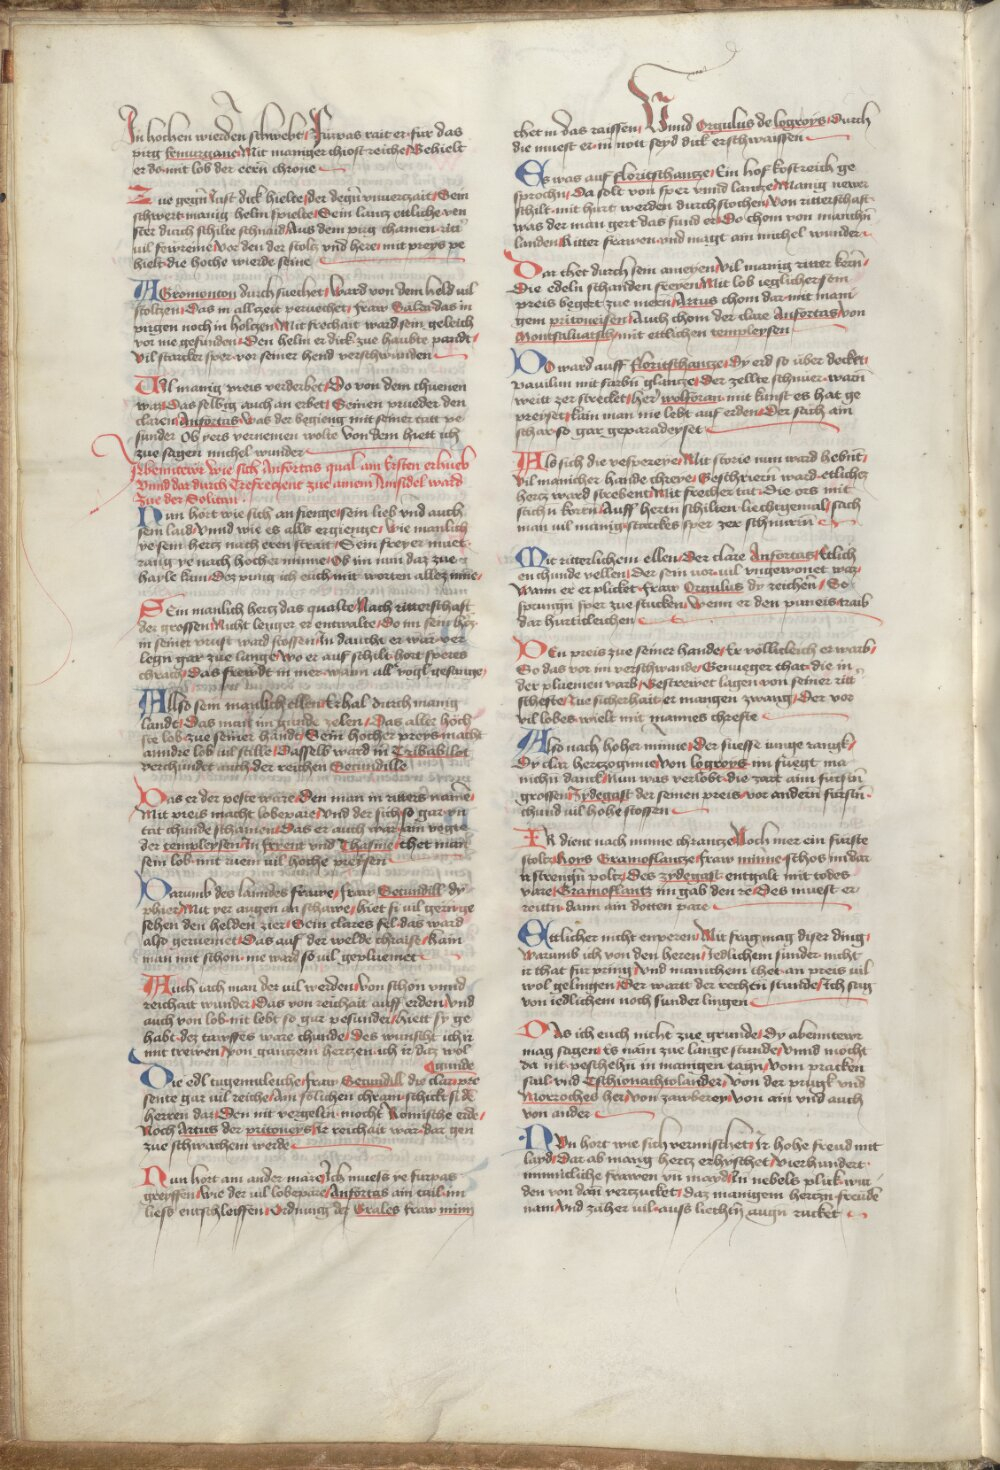 In hochen wierden schwebt/ Furpas rait er fur das
pirg kemurgane/ Mit maniger thiost reiche/ Behielt
er do mit lob der eern chrone
Zue gegn iust dick hielte/ der degn vnuerzait/ Sein
schwert manig helm spielte/ Sein lantz ettliche ven
ster durch schilte schnaid/ Aus dem pirg chamen ritt
vil sowreine/ Vor den der stoltz vnd here/ mit preys pe
hielt die hoche wierde seine
AGromonton durchsuechet/ Ward von dem held vil
stoltzen/ Das in all zeit peruechet/ Fraw Salda das in
pirgen noch in holtzen/ Mit frechait ward sein geleich
vor nie gefunden/ Den helm er dick zue haubte pandt/
Vil starcker sper vor seiner hend verschwunden
Vil manig preis verderbet/ Do von dem chuenen
was/ Das selbig auch an erbet/ Seinen prueder den
claren Anfortas/ Was der begieng mit seiner tatt pe
sunder Ob yers vernemen wolte Von dem hiett ich
zue sagen michel wunder
Abenntewr wie sich Anfortas qual am Ersten erhueb
Vnnd dar durch Trefrezent zue ainem Ainsidel ward
Zue der Solitan
Nun hort wie sich an fienge/ sein lieb vnd auch
sein laid/ Vnnd wie es alls ergienge/ Wie manlich
ye sein hertz nach eren strait/ Sein freyer muet
rang ye nach hocher minne/ Ob im nun daz zue
hayle kun/ Dez pring ich euch mit worten allez inne/
SEin manlich hertz das qualte/ Nach ritterschaft
der grossen/ Nicht lenger er entwalte/ Do im sein hertz
in seiner prust ward stossen/ In daucht er war ver
legn gar zue lange/ Wo er auf schilt hort speres
chrach/ Das frewdt in mer wann all vogl gesange/
Allso sein manlich ellen/ Erhal durch manig
landt/ Das man im gunde zelen/ Das aller höch
ste lob zue seiner handt/ Sein hocher preys macht
anndre lob vil stille/ Dasselb ward in Tribabilot
verchundet auch der reichen Secundille
Das er der peste ware/ Den man in ritters name/
Mit preis macht lobepare/ Vnd der sich so gar vn
tat chunde schamen/ Das er auch war ain vogte
der templeysen/ In Frient vnd Thasme/ thet man
sein lob mit ruem vil hoche preysen
Darumb des lanndes frawe/ Fraw Secundill dy
phier/ Mit yer augen an schawe/ hiet si vil gernne
sehen den helden zier/ Sein clares fel das ward
also geruemet/ Das auf der welde chraise/ kain
man mit schon nie ward so vil gepluemet
Auch iach man der vil werden/ Von schon vnnd
reichait wunder/ Das von reichait auff erden/ Vnd
auch von lob nit lebt so gar pesunder/ hiett sy ge
habt dez tawffes ware chunde/ Des wunscht ich ir
mit trewen/ Von gantzem hertzen ich ir daz wol
gunde
Die edl tugentuleiche/ Fraw Secundill die clar pre
sente gar vil reiche/ Am solichen chram schickt si de
herren dar/ Den nit vergelten mocht Romische erde/
Noch Artus der pritoneys/ Ir reichait war dar gen
zue schwachem werde
Nun hort am ander maie/ Ich mueß ye furpas
greyffen/ Wie der vil lobepare/ Anfortas ain tail im
liess entschleiffen/ Ordnung des Grales Fraw minn
thet in das raissen/ Vnnd Orgulus de logroys/ Durch
die muest er in nott seyd dick erschwaissen
Es was auf Floritschantze/ Ein hof kostreich ge
sprochn/ Da solt von sper vnnd lantze/ Manig newer
schilt mit hurt werden durchstochen/ Von ritterschaft
was der man gert das fund er/ Do chom von manchn
landen/ Ritter frawen vnd magt ain michel wunder
Dar thet durch sein ameyen/ Vil manig ritter kern/
Die edeln schanden freyen/ Mit lob ieglicher sein
preis begert zue mern/ Artus chom dar mit mani
gem pritoneisen/ Auch chom der clare Anfortas von
Montsaluatsch/ mit ettlichen templeysen
DO ward auff Floritschantze/ Dy erd so über decket/
pauilun mit farbn glantze/ Der zellte schnuer warn
weitt zer strecket/ her wolforan mit kunst es hat ge
preyset/ kain man nie lebt auf erden/ Der sich am
schar so gar geparadeyset
Also sich die vespereye/ Mit storie nun ward hebnt/
Vil manicher hande chreye/ Beschriern ward ettlicher
hertz ward strebent/ Mit frecher tat/ Die ors mit
stichn kertn/ Auff hertn schilten liechtgemal/ sach
man vil manig starckes sper zer schnurrn
Mit ritterlichem ellen/ Der clare Anfortas/ Ettlich
en chunde vellen/ Der sein vor vil vngewonet was/
Wann er er plicket Fraw Orgulus dy reichen/ So
sprungn sper zue stucken/ Wenn er den puneis traib
dar hurticleichen
DEn preis zue seiner hande/ Er volliclich erwarb/
So das vor im verschwande/ Genueger that die in
der pluemen varb/ Gestrewet lagen von seiner ritt
scheffte/ Zue sicherhait er mangen zwang/ Der vor
vil lobes wielt mit mannes chrefte
Also nach hoher minne/ Der suesse iunge rangk/
Dy clar hertzoginne/ Von logroys im fuegt ma
nichn danck/ Nun was verlobt die zart ainn furstn
grossen/ Zydegast der seinen preis vor andern furstn
chund vil hohe stossen
ER dient nach minne chrantze/ Noch mer ein furste
stoltz/ Roys Gramoflantze/ Fraw minne schos in dar
ir strengn poltz/ Des zydegast entgalt mit todes
vare/ Gramoflantz im gab den re/ Des muest er
reutn dann ain dotten pare
Ettlicher nicht enperen/ Mit frag mag diser ding/
Warumb ich von den heren/ Iedlichem sunder nicht
ir that fur pring/ Vnd manichem thet an preis vil
wol gelingen/ Der wartt der rechtn stunde/ Ich sag
von iedlichem noch sunder lingen
DAs ich euch nicht zue grunde/ Dy abenntewr
mag sagen/ Es nam zue lange stunde/ Vnnd mocht
da nit peschehn in manigen tagn/ Vom pracken
sail vnd Tschionachtolander/ Von der prugk vnd
Morroches her/ Von zawberey/ Von ain vnd auch
von ander
NUn hort wie sich vermischet/ Ir hohe freud mit
layd/ Dar ab manig hertz erhyschet/ Vierhundert
minnicliche frawen vn mayd/ In nebels plick wur
den von dan verzucket/ Daz manigem hertzn freude
nam/ Vnd zäher vil auß liechtn augn rucket